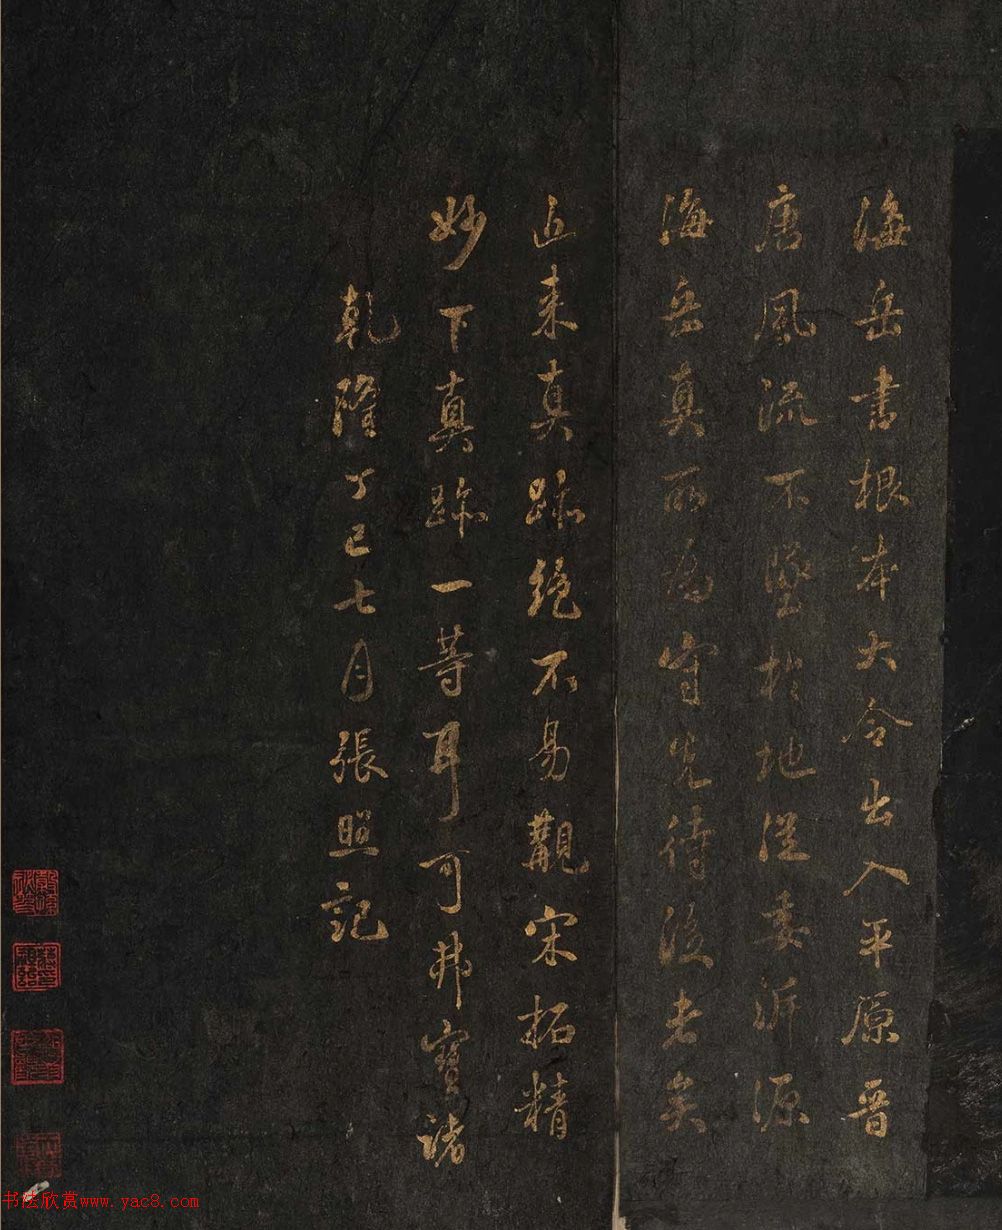 海岳書根本大令出入平原晋
唐風流不墜於地從委泝源
海岳真所為守先待後者矣
近来真跡絕不易覯宋拓精
妙下真跡一等耳可弗寶諸
乾隆丁巳七月張照記
书法欣赏www.yac8.com